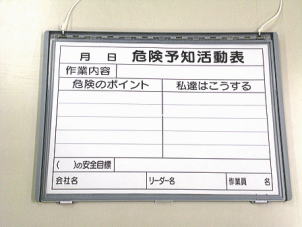 月 日 危険予知活動表
作業内容
危険のポイント 私達はこうする
( )の安全目標
会社名 リーダー名 作業員 名